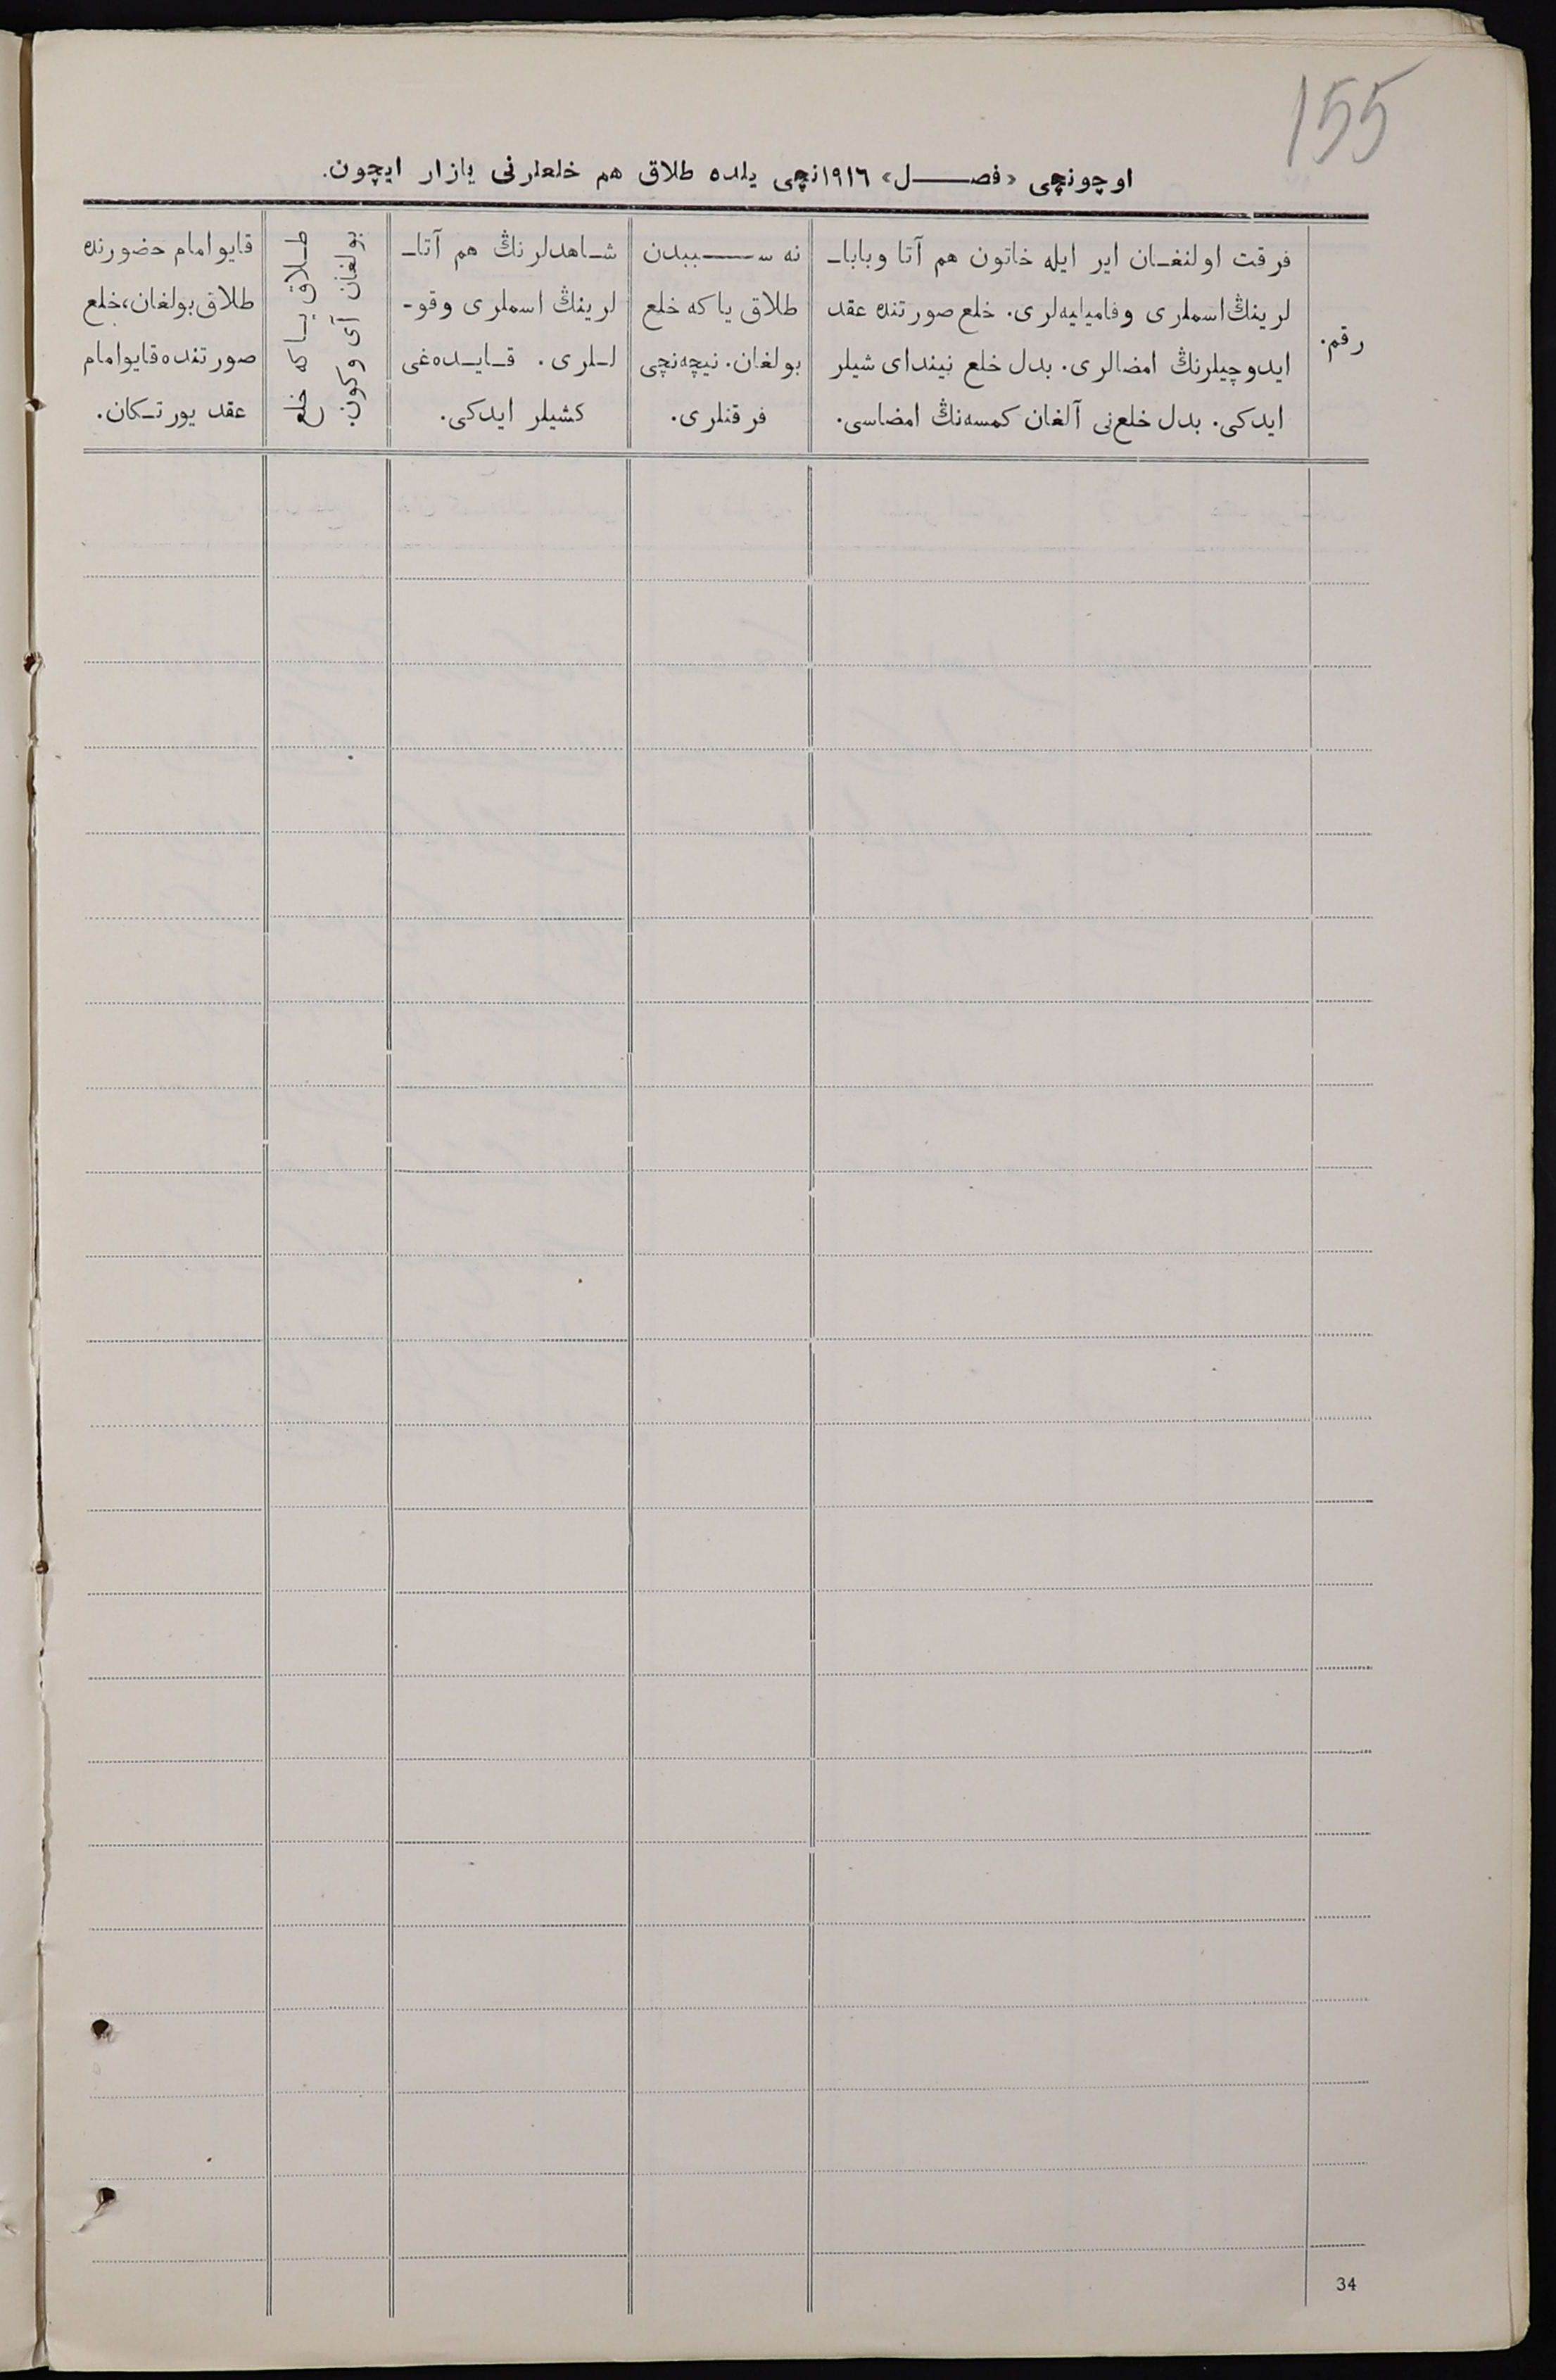 155
اوچونچی «فصل» ١٩١٦نچی یلده طلاق هم خلعلرنی یازار ایچون.
رقم.
فرقت اولنغان ایر ایله خاتون هم آتا وبابا-
لرینڭ اسملری وفامیلیه‌لری. خلع صورتنده عقد
ایدوچیلرنڭ امضالری. بدل خلع نیندای شیلر
ایدکی. بدل خلع‌نی آلغان کمسه‌نڭ امضاسی.
نه سببدن
طلاق یا که خلع
بولغان. نیچه‌نچی
فرقتلری.
شاهدلرنڭ هم آتا-
لرینڭ اسملری وقو-
للری. قایده‌غی
کشیلر ایدکی.
طلاق یا که خلع
بولغان آی وکون.
قایو امام حضورنده
طلاق بولغان، خلع
صورتنده قایو امام
عقد یورتکان.
34